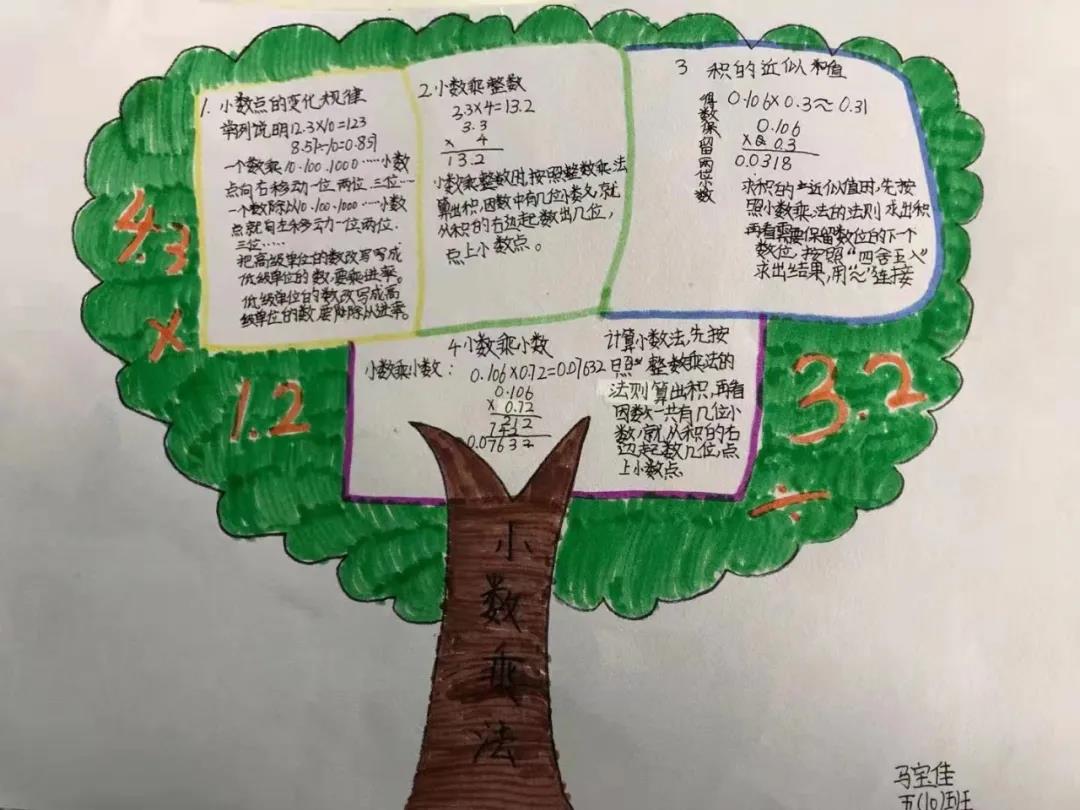 1. 小数点的变化规律
举列说明12.3×10=123
8.51÷10=0.851
一个数乘10.100.1000……小数
点向右移动一位,两位,三位…
一个数除以10.100.1000……小数
点就向左移动一位,两位,
三位……
把高级单位的数改写写成
低级单位的数,要乘进率。
低级单位的数改写成高
级单位的数,要除以进率。
2.小数乘整数
3.3×4=13.2
3.3
× 4
13.2
小数乘整数时,按照整数乘法
算出积,因数中有几位小数,就
从积的右边起数出几位,
点上小数点。
3 积的近似值
得数保留两位小数
0.106×0.3≈0.31
0.106
× 0.3
0.0318
求积的近似值时,先按
照小数乘法的法则求出积
再看需要保留数位的下一个
数位,按照“四舍五入”
求出结果,用“≈”连接
4小数乘小数
小数乘小数:0.106×0.72=0.07632
0.106
× 0.72
212
742
0.07632
计算小数法,先按
照整数乘法的
法则算出积,再看
因数一共有几位小
数,就从积的右
边起数几位,点
上小数点
4.3
×
1.2
3.2
÷
小数乘法
马宝佳
五(10)班